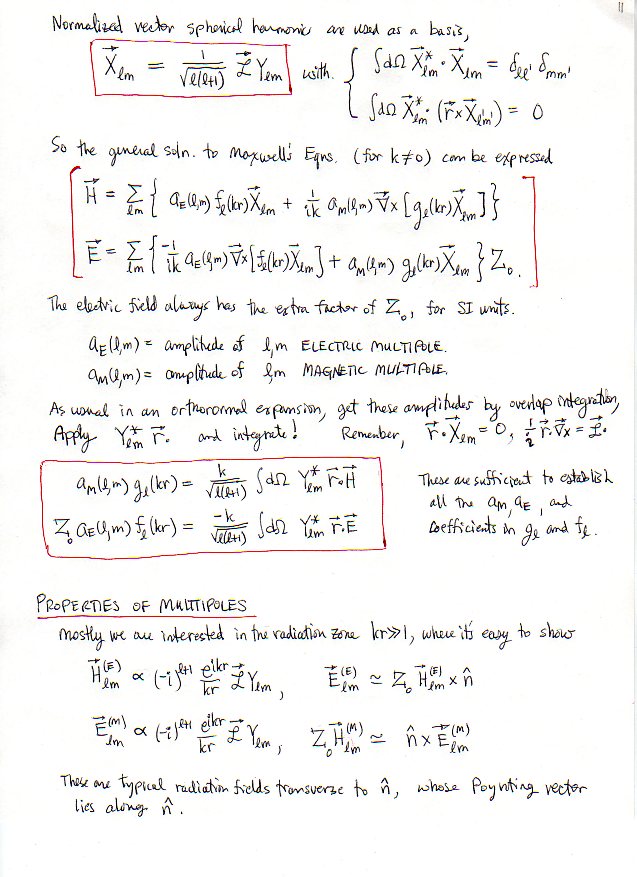 11
Normalized vector spherical harmonic are used as a basis,
X⃗ₗₘ = 1/√(l(l+1)) L⃗ Yₗₘ with { ∫dΩ X⃗*ₗ'ₘ' · X⃗ₗₘ = δₗₗ' δₘₘ'
∫dΩ X⃗*ₗₘ · (r⃗×X⃗ₗ'ₘ') = 0
So the general soln. to Maxwell's Eqns. (for k≠0) can be expressed
H⃗ = Σₗₘ { a_E(l,m) fₗ(kr) X⃗ₗₘ + 1/ik a_M(l,m) ∇⃗× [gₗ(kr) X⃗ₗₘ] }
E⃗ = Σₗₘ { -1/ik a_E(l,m) ∇⃗× [fₗ(kr) X⃗ₗₘ] + a_M(l,m) gₗ(kr) X⃗ₗₘ } Z₀.
The electric field always has the extra factor of Z₀, for SI units.
a_E(l,m) = amplitude of l,m ELECTRIC MULTIPOLE.
a_M(l,m) = amplitude of l,m MAGNETIC MULTIPOLE.
As usual in an orthonormal expansion, get these amplitudes by overlap integration,
Apply Y*ₗₘ r⃗· and integrate! Remember, r⃗·X⃗ₗₘ = 0, 1/i r⃗·∇⃗× = L⃗·
a_M(l,m) gₗ(kr) = k/√(l(l+1)) ∫dΩ Y*ₗₘ r⃗·H⃗
Z₀ a_E(l,m) fₗ(kr) = -k/√(l(l+1)) ∫dΩ Y*ₗₘ r⃗·E⃗
These are sufficient to establish
all the a_M, a_E, and
coefficients in gₗ and fₗ.
PROPERTIES OF MULTIPOLES
Mostly we are interested in the radiation zone kr≫1, where it's easy to show
H⃗ₗₘ^(E) ∝ (-i)^(l+1) e^(ikr)/kr L⃗ Yₗₘ, E⃗ₗₘ^(E) ≃ Z₀ H⃗ₗₘ^(E) × n̂
E⃗ₗₘ^(M) ∝ (-i)^(l+1) e^(ikr)/kr L⃗ Yₗₘ, Z₀ H⃗ₗₘ^(M) ≃ n̂ × E⃗ₗₘ^(M)
These are typical radiation fields transverse to n̂, whose Poynting vector
lies along n̂.